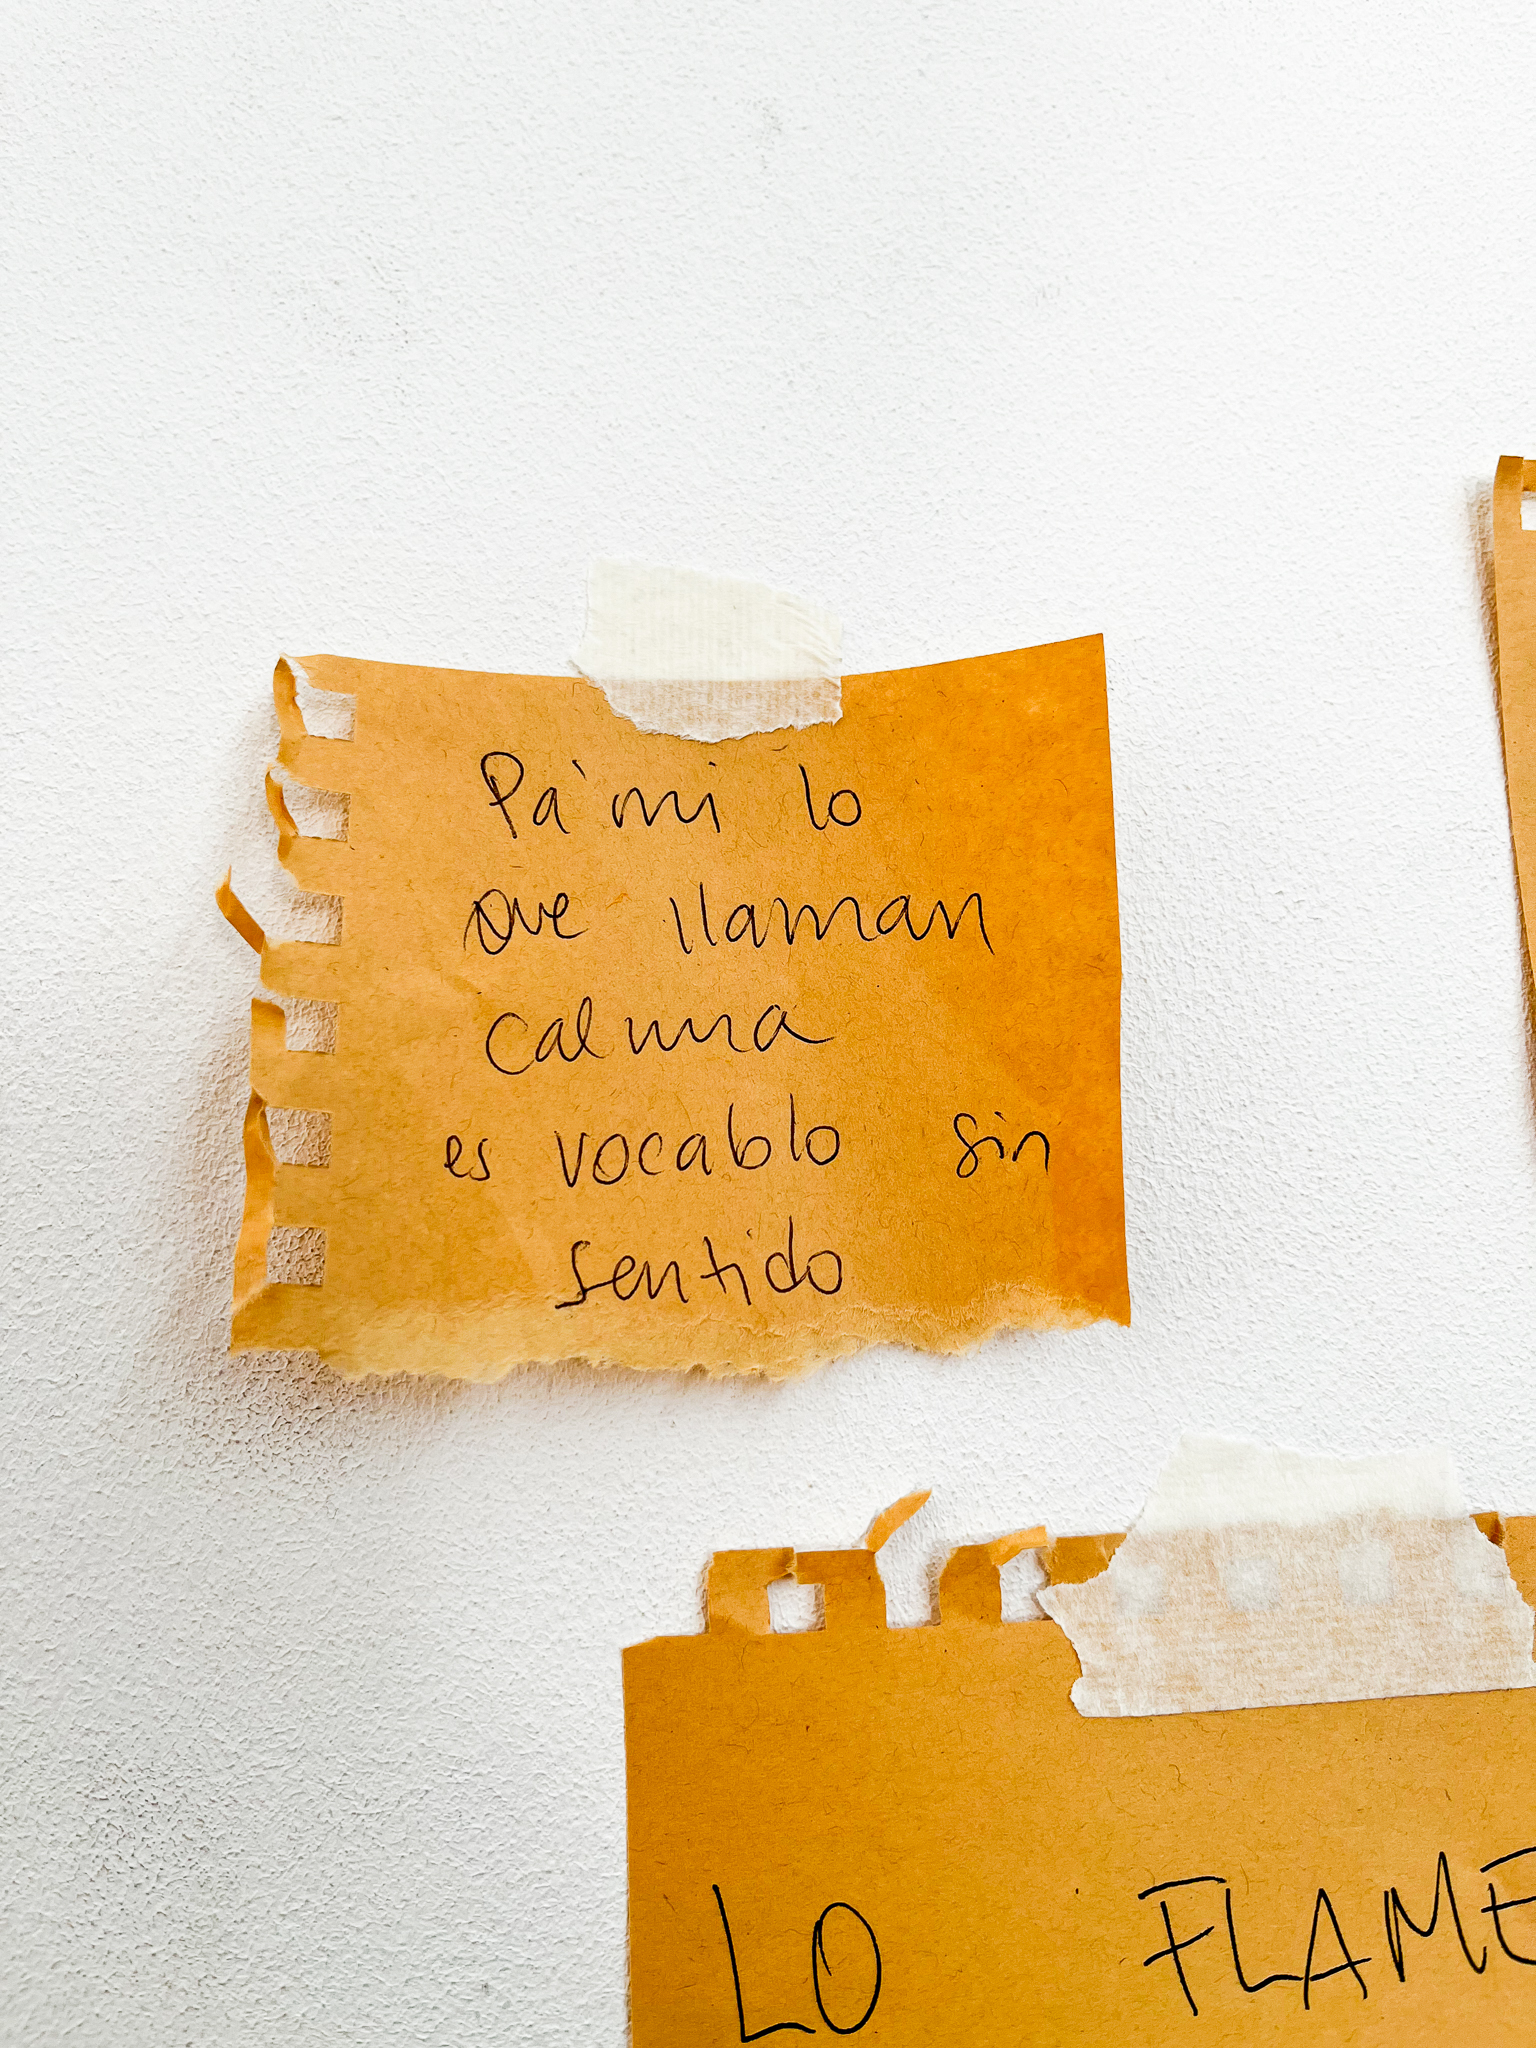 Pa' mi lo
que llaman
calma
es vocablo sin
sentido
LO FLAME